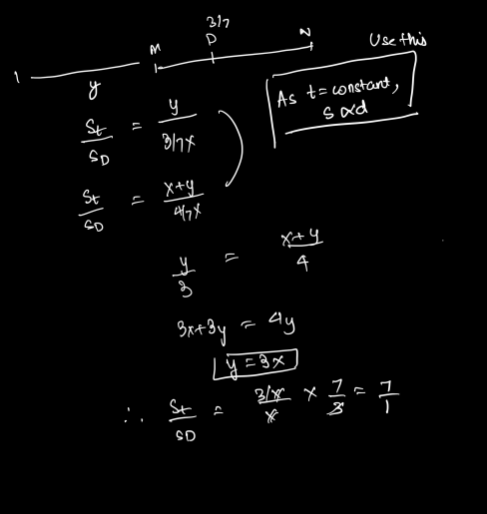 3/7
M D N
Use this
1
y
As t = constant,
s ∝ d
St/SD = y/(3/7x)
St/SD = (x+y)/(4/7x)
y/3 = (x+y)/4
3x+3y = 4y
y = 3x
∴ St/SD = 3x/x × 7/3 = 7/1